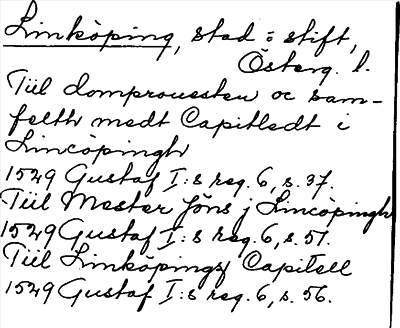 Linköping, stad o stift,
Österg. l.
Tiil domprouesten oc sam-
felth medt Capitledt i
Lincöpingh
1529 Gustaf I:s reg. 6, s. 37.
Tiil Mester Jöns j Lincöpingh
1529 Gustaf I:s reg. 6, s. 51.
Tiil Linköpings Capitell
1529 Gustaf I:s reg. 6, s. 56.